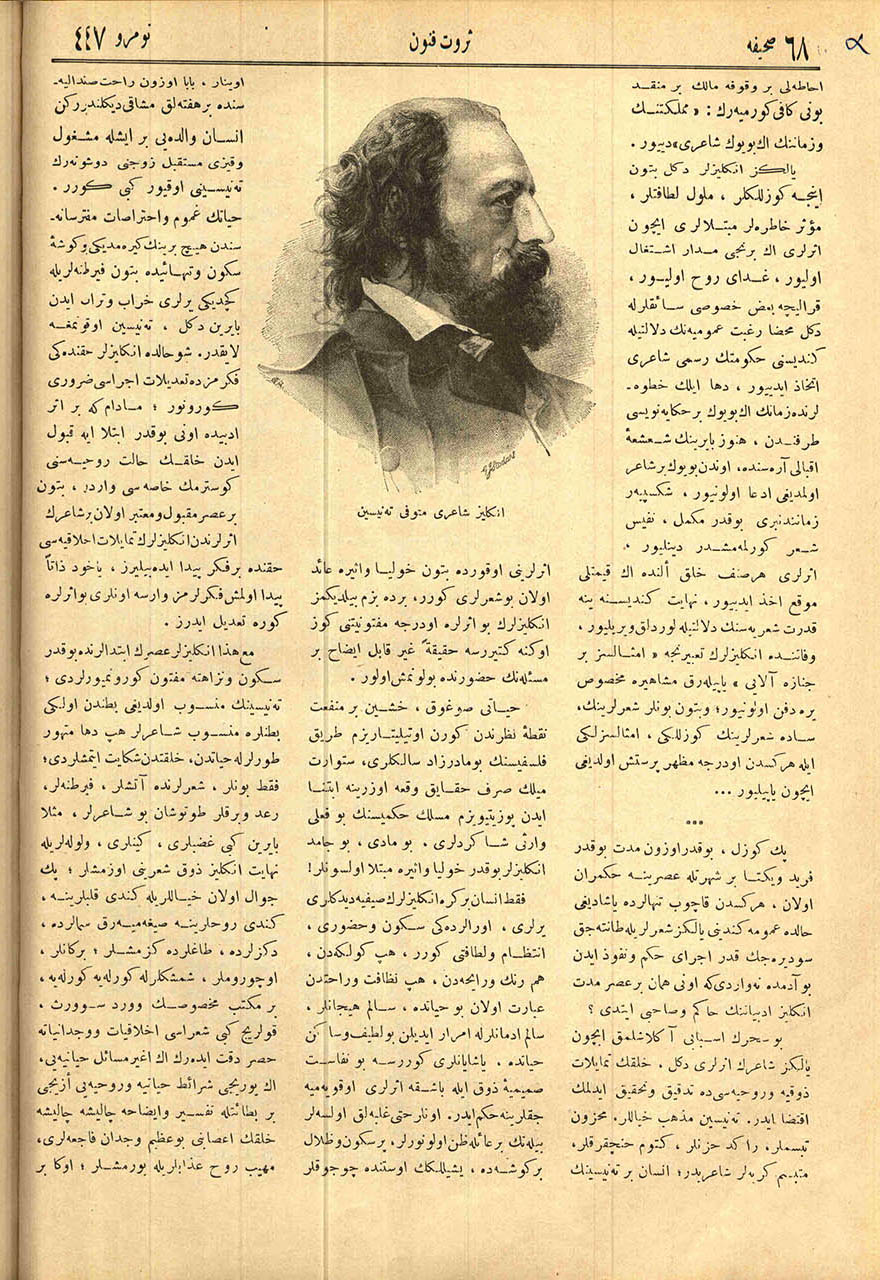 ٦٨ صحیفه
ثروت فنون
نومرو ٤٤٧
احاطه‌لی بر وقوفه مالك بر منقد
بونی كافی كورمیه‌رك : « مملكتنـك
وزماننك اك بویوك شاعری» دییور .
یالكز انكلیزلر دكل بتون
اینجـه كوزللكلر ، ملول لطافتلر ،
مؤثر خاطره‌لر مبتـلالری ایچون
اثرلری اك برنجی مـدار اشـتغال
اولیور ، غـدای روح اولیـور ،
قرالیچه بعض خصوصی سـائقلرله
دكل محضا رغبت عمومیه‌نك دلالتیله
كندیسنی حكومتك رسمی شاعری
اتخاذ ایدییور ، دها ایلك خطوه‌ـ
لرنده زمانك اك بویوك بر حكایه‌نویسی
طرفـدن ، هنوز بایرینك شـعشعهٔ
اقبالی آره‌سنده، اوندن بویوك بر شاعر
اولدیغی ادعا اولنیور ، شكسپیر
زمانندنبری بوقدر مكمل ، نفیس
شـعر كورلمه‌مشـدر دینلیور .
اثرلری هر صنف خلق ألنده اك قیمتلی
موقع اخذ ایدییور ، نهایت كندیسـنه ینه
قدرت شعریه‌سنك دلالتیله لوردلق ویریلیور ،
وفاتنـده انكلیزلرك تعبیرنجه « امثالسـز بر
جنازه آلایی » یاپیله‌رق مشاهیره مخصوص
یره دفن اولونیور؛ وبتون بونلر شعرلرینك،
سـاده شعرلرینك كوزللكی ، امثالسزلكی
ایله هركسدن اودرجه مظهر پرستش اولدیغی
ایچون یاپیلیور ...
***
پك كوزل ، بوقدر اوزون مدت بوقدر
فرید ویكتـا بر شهرتله عصرینـه حكمران
اولان ، هركسدن قاچوب تنهالرده یاشادیغی
حالده عمومه كندینی یالكز شعرلریله طانتـه‌جق
سودیره‌جك قدر اجرای حكم ونفوذ ایدن
بو آدمده نه واردی كه اونی همان بر عصر مدت
انكلیز ادبیاتنك حاكم وصاحبی ایتدی ؟
بو سحرك اسـبابی آكلاشلمق ایچون
یالكز شاعرك اثرلری دكل ، خلقك تمایلات
ذوقیه وروحیه‌سی ده تدقیق وتحقیق ایدلمك
اقتضا ایدر. ته‌نیسین مذهب خیاللر، محزون
تبسملر، راكد حزنلر ، كتوم هنچقرقلر،
متبسم كریه‌لر شاعریدر؛ انسان بر ته‌نیسینك
انكلیز شاعری متوفی ته‌نیسین
اثرلرینی اوقورده بتون خولیـا واثیره عائد
اولان بو شعرلری كورر، برده بزم بیلدیكمز
انكلیزلرك بو اثرلره اودرجه مفتونیتنی كوز
اوكنه كتیررسه حقیقةً غیر قابل ایضاح بر
مسئله‌نك حضورنده بولونمش اولور .
حیـاتی صوغوق ، خشـین بر منفعت
نقطهٔ نظرندن كورن اوتیلیتـاریزم طریق
فلسفیسنك بومادرزاد سالكلری ، ستوارت
میلك صرف حقـایق وقعه اوزرینه ابتنـا
ایدن پوزیتویزم مسلك حكمیسنك بو فعلی
وارثی شـاكردلری . بو مادی ، بو جامد
انكلیزلر بوقدر خولیا واثیره مبتلا اولسونلر!
فقط انسان بر كره انكلیزلرك صیفیه دیدكلری
یرلری ، اورالرده‌كی سكون وحضوری ،
انتظـام ولطافتی كورر ، هپ كولكه‌دن ،
هم رنك ورایحه‌دن ، هپ نظافت وراحتدن
عبارت اولان بو حیاتده ، سـالم هیجانلر ،
سالم آدمانلرله امرار ایدیلن بولطیف وسـاكن
حیاتده ، یاشایانلری كوررسه بو نفاست
صمیمیهٔ ذوق ایله باشـقه اثرلری اوقویه‌میه
جقلرینه حكم ایدر. اونلر حتی غلبه‌لق اولسه‌لر
بیله تك بر عائله ظن اولونورلر، پرسكون وظلال
بر كوشه‌ده ، یشیللكك اوستنده چوجوقلر
اوینار ، بابا اوزون راحت صندالیه‌ـ
سنده بر هفته‌لق مشاقی دیكلندیرركن
انسـان والده‌یی بر ایشله مشـغول
وقیزی مستقبل زوجنی دوشونه‌رك
ته‌نیسینی اوقیور كبی كورر .
حیاتك عموم واحتراصات مفترسانه‌ـ
سندن هیـچ برینك كیره‌مدیكی وكوشهٔ
سكون وتنهـائیده بتون فیرطنه‌لریله
كچدیكی یرلری خراب وتراب ایدن
بایرین دكل ، ته‌نیسین اوقونمغـه
لایقدر. شو حالده انكلیزلر حقنده‌كی
فكرمزده تعدیلات اجراسی ضروری
كـورونور ؛ مـادام كه بر اثر
ادبیده اونی بوقدر ابتلا ایله قبول
ایدن خلقـك حالت روحیـه‌سنی
كوسترمك خاصه سی واردر ، بتون
بر عصر مقبول ومعتبر اولان بر شاعرك
اثرلرندن انكلیزلرك تمایلات اخلاقیه‌سی
حقنده بر فكر پیدا ایده‌بیلیرز ، یاخود ذاتاً
پیدا اولمش فكرلرمز وارسه اونلری بو اثرلره
كوره تعدیل ایدرز .
مع هذا انكلیزلر عصرك ابتدالرنده بوقدر
سـكون ونزاهته مفتون كورونمیورلردی ؛
ته‌نیسینك منسوب اولدیغی بطندن اولكی
بطنلره منسوب شـاعرلر هپ دها متهور
طورلرله حیاتدن، خلقتدن شكایت ایتمشلردی؛
فقط بونلر ، شعرلرنده آتشلر ، فیرطنه‌لر،
رعد وبرقلر طوتوشان بو شـاعرلر ، مثلا
بایرین كبی غضبلری ، كینلری ، ولوله‌لریله
نهایت انكلیز ذوق شعرینی اوزمشلر ؛ پك
جوال اولان خیـاللریله كندی قلبلرینـه ،
كندی روحلرینـه صیغه‌میـه‌رق سمالرده ،
دكزلرده ، طاغلرده كزمشـلر ؛ بركانلر ،
اوچوروملر ، شمشكلرله كورله‌یه كورله‌یه ،
بر مكتب مخصوصـك وورد سـوورث ،
قولریج كبی شعراسی اخلاقیات ووجدانیاته
حصر دقت ایده‌رك اك اغیر مسائل حیاتیه‌یی،
اك یوریجی شرائط حیاتیه وروحیه‌یی أزیجی
بر بطائتله تفسیر وایضاحه چالیشه چالیشه
خلقك اعصابنی بو عظیم وجدان فاجعه‌لری،
مهیب روح عذابلریله یورمشلر ؛ اوكا بر